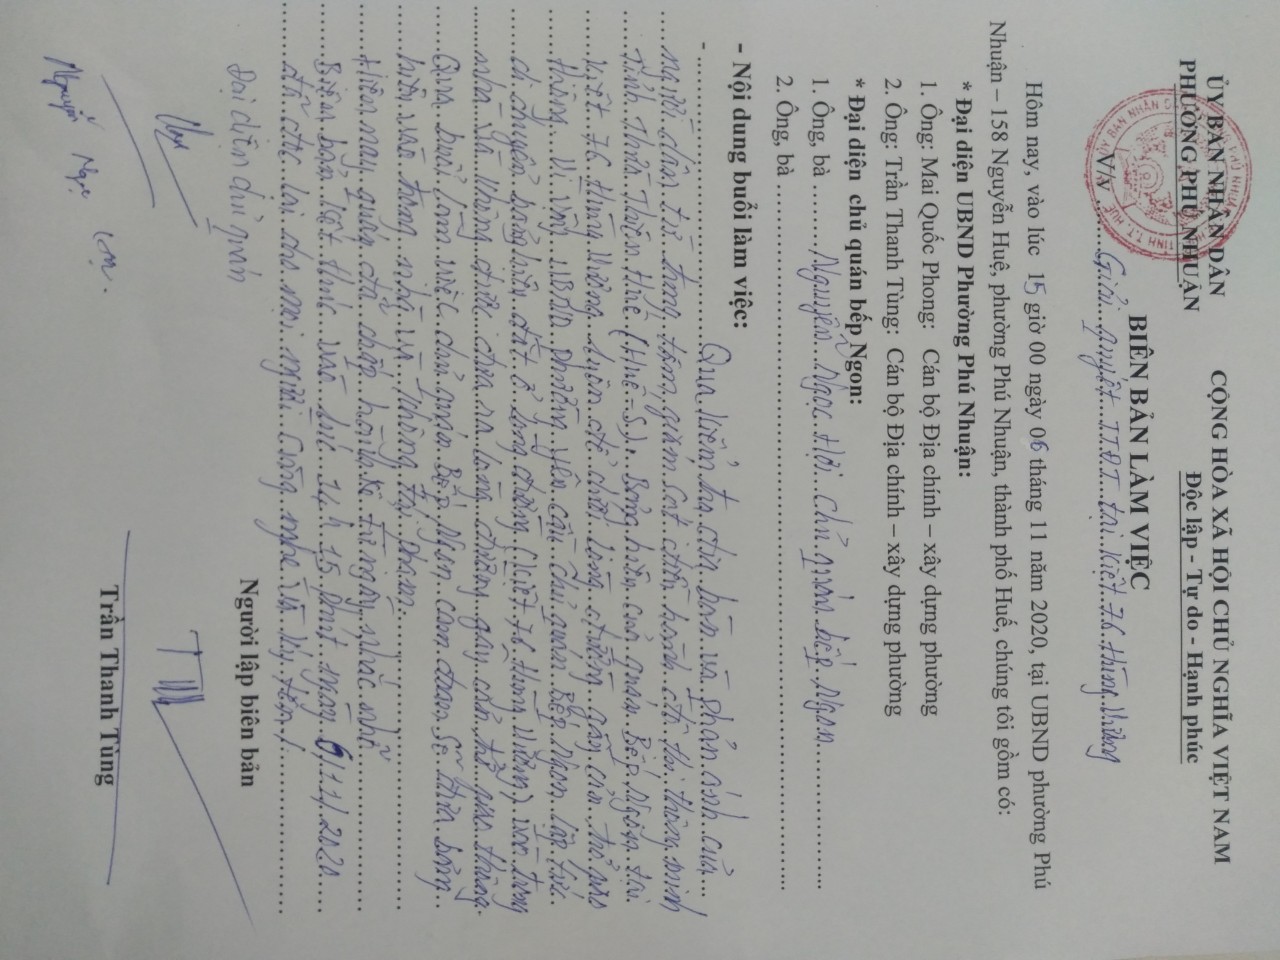 ỦY BAN NHÂN DÂN
PHƯỜNG PHÚ NHUẬN
CỘNG HÒA XÃ HỘI CHỦ NGHĨA VIỆT NAM
Độc lập - Tự do - Hạnh phúc
BIÊN BẢN LÀM VIỆC
V/v ..... Giải quyết TTĐT tại kiệt 76 Hùng Vương
Hôm nay, vào lúc 15 giờ 00 ngày 06 tháng 11 năm 2020, tại UBND phường Phú
Nhuận – 158 Nguyễn Huệ, phường Phú Nhuận, thành phố Huế, chúng tôi gồm có:
* Đại diện UBND Phường Phú Nhuận:
1. Ông: Mai Quốc Phong: Cán bộ Địa chính – xây dựng phường
2. Ông: Trần Thanh Tùng: Cán bộ Địa chính – xây dựng phường
* Đại diện chủ quán bếp Ngon:
1. Ông, bà ....... Nguyễn Ngọc .... chủ quán bếp Ngon .......
2. Ông, bà .......
- Nội dung buổi làm việc:
- ....... Qua kiểm tra địa bàn và phản ánh của ...
người dân từ trung tâm giám sát điều hành đô thị thông minh
tỉnh Thừa Thiên Huế (Hue-S). Bảng hiệu của quán Bếp Ngon tại
kiệt 76 Hùng Vương luôn để dưới lòng đường gây cản trở giao
thông. Vì vậy UBND phường yêu cầu chủ quán Bếp Ngon lập tức
di chuyển bảng hiệu đặt ở lòng đường (kiệt 76 Hùng Vương) vào trong
nhà và không được đưa ra lòng đường gây cản trở giao thông.
Qua buổi làm việc chủ quán Bếp Ngon cam đoan sẽ đưa bảng
hiệu vào trong nhà và không tái phạm.
Hiện nay quán đã chấp hành kể từ ngày nhắc nhở
Biên bản kết thúc vào lúc 14h 15 phút ngày 6/11/2020
đã đọc lại cho mọi người cùng nghe và ký tên./.
Đại diện chủ quán
Người lập biên bản
Nguyễn Ngọc
Trần Thanh Tùng